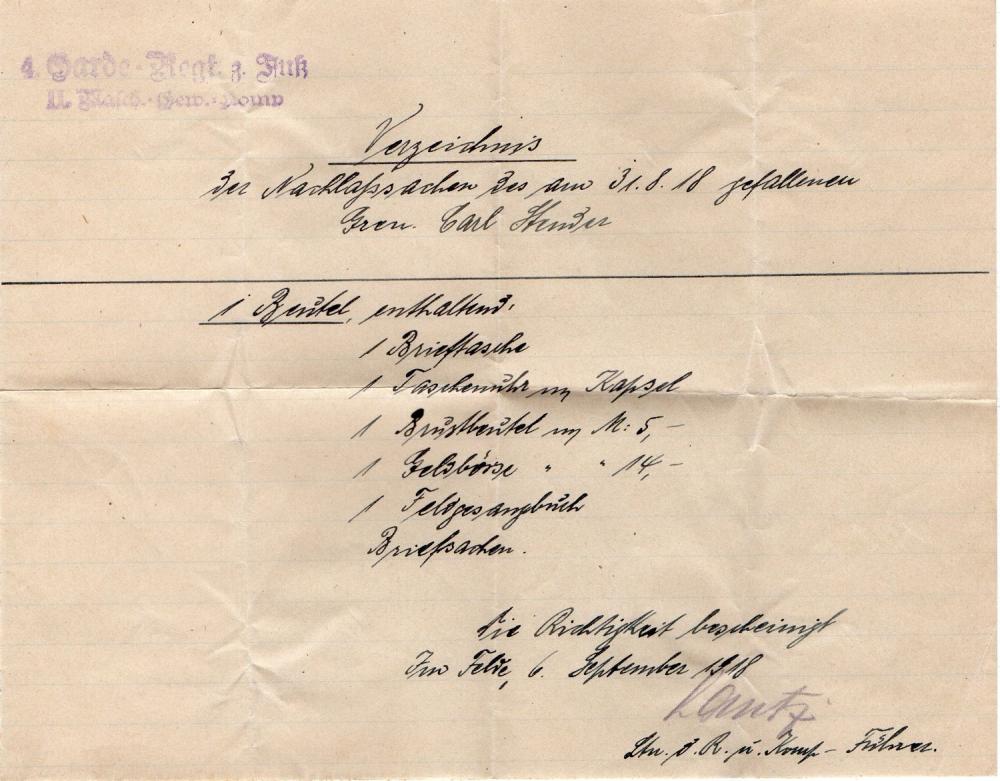 4. Garde-Regt. z. Fuß
II. Masch.-Gew.-Komp
Verzeichnis
der Nachlaßsachen des am 31.8.18 gefallenen
Gren. Carl Stender
1 Beutel, enthaltend:
1 Brieftasche
1 Taschenuhr m Kapsel
1 Brustbeutel m M: 5,-
1 Geldbörse " " 14,-
1 Feldgesangbuch
Briefsachen.
Die Richtigkeit bescheinigt
Im Felde, 6. September 1918
Kautz
Ltn. d. R. u. Komp-Führer.